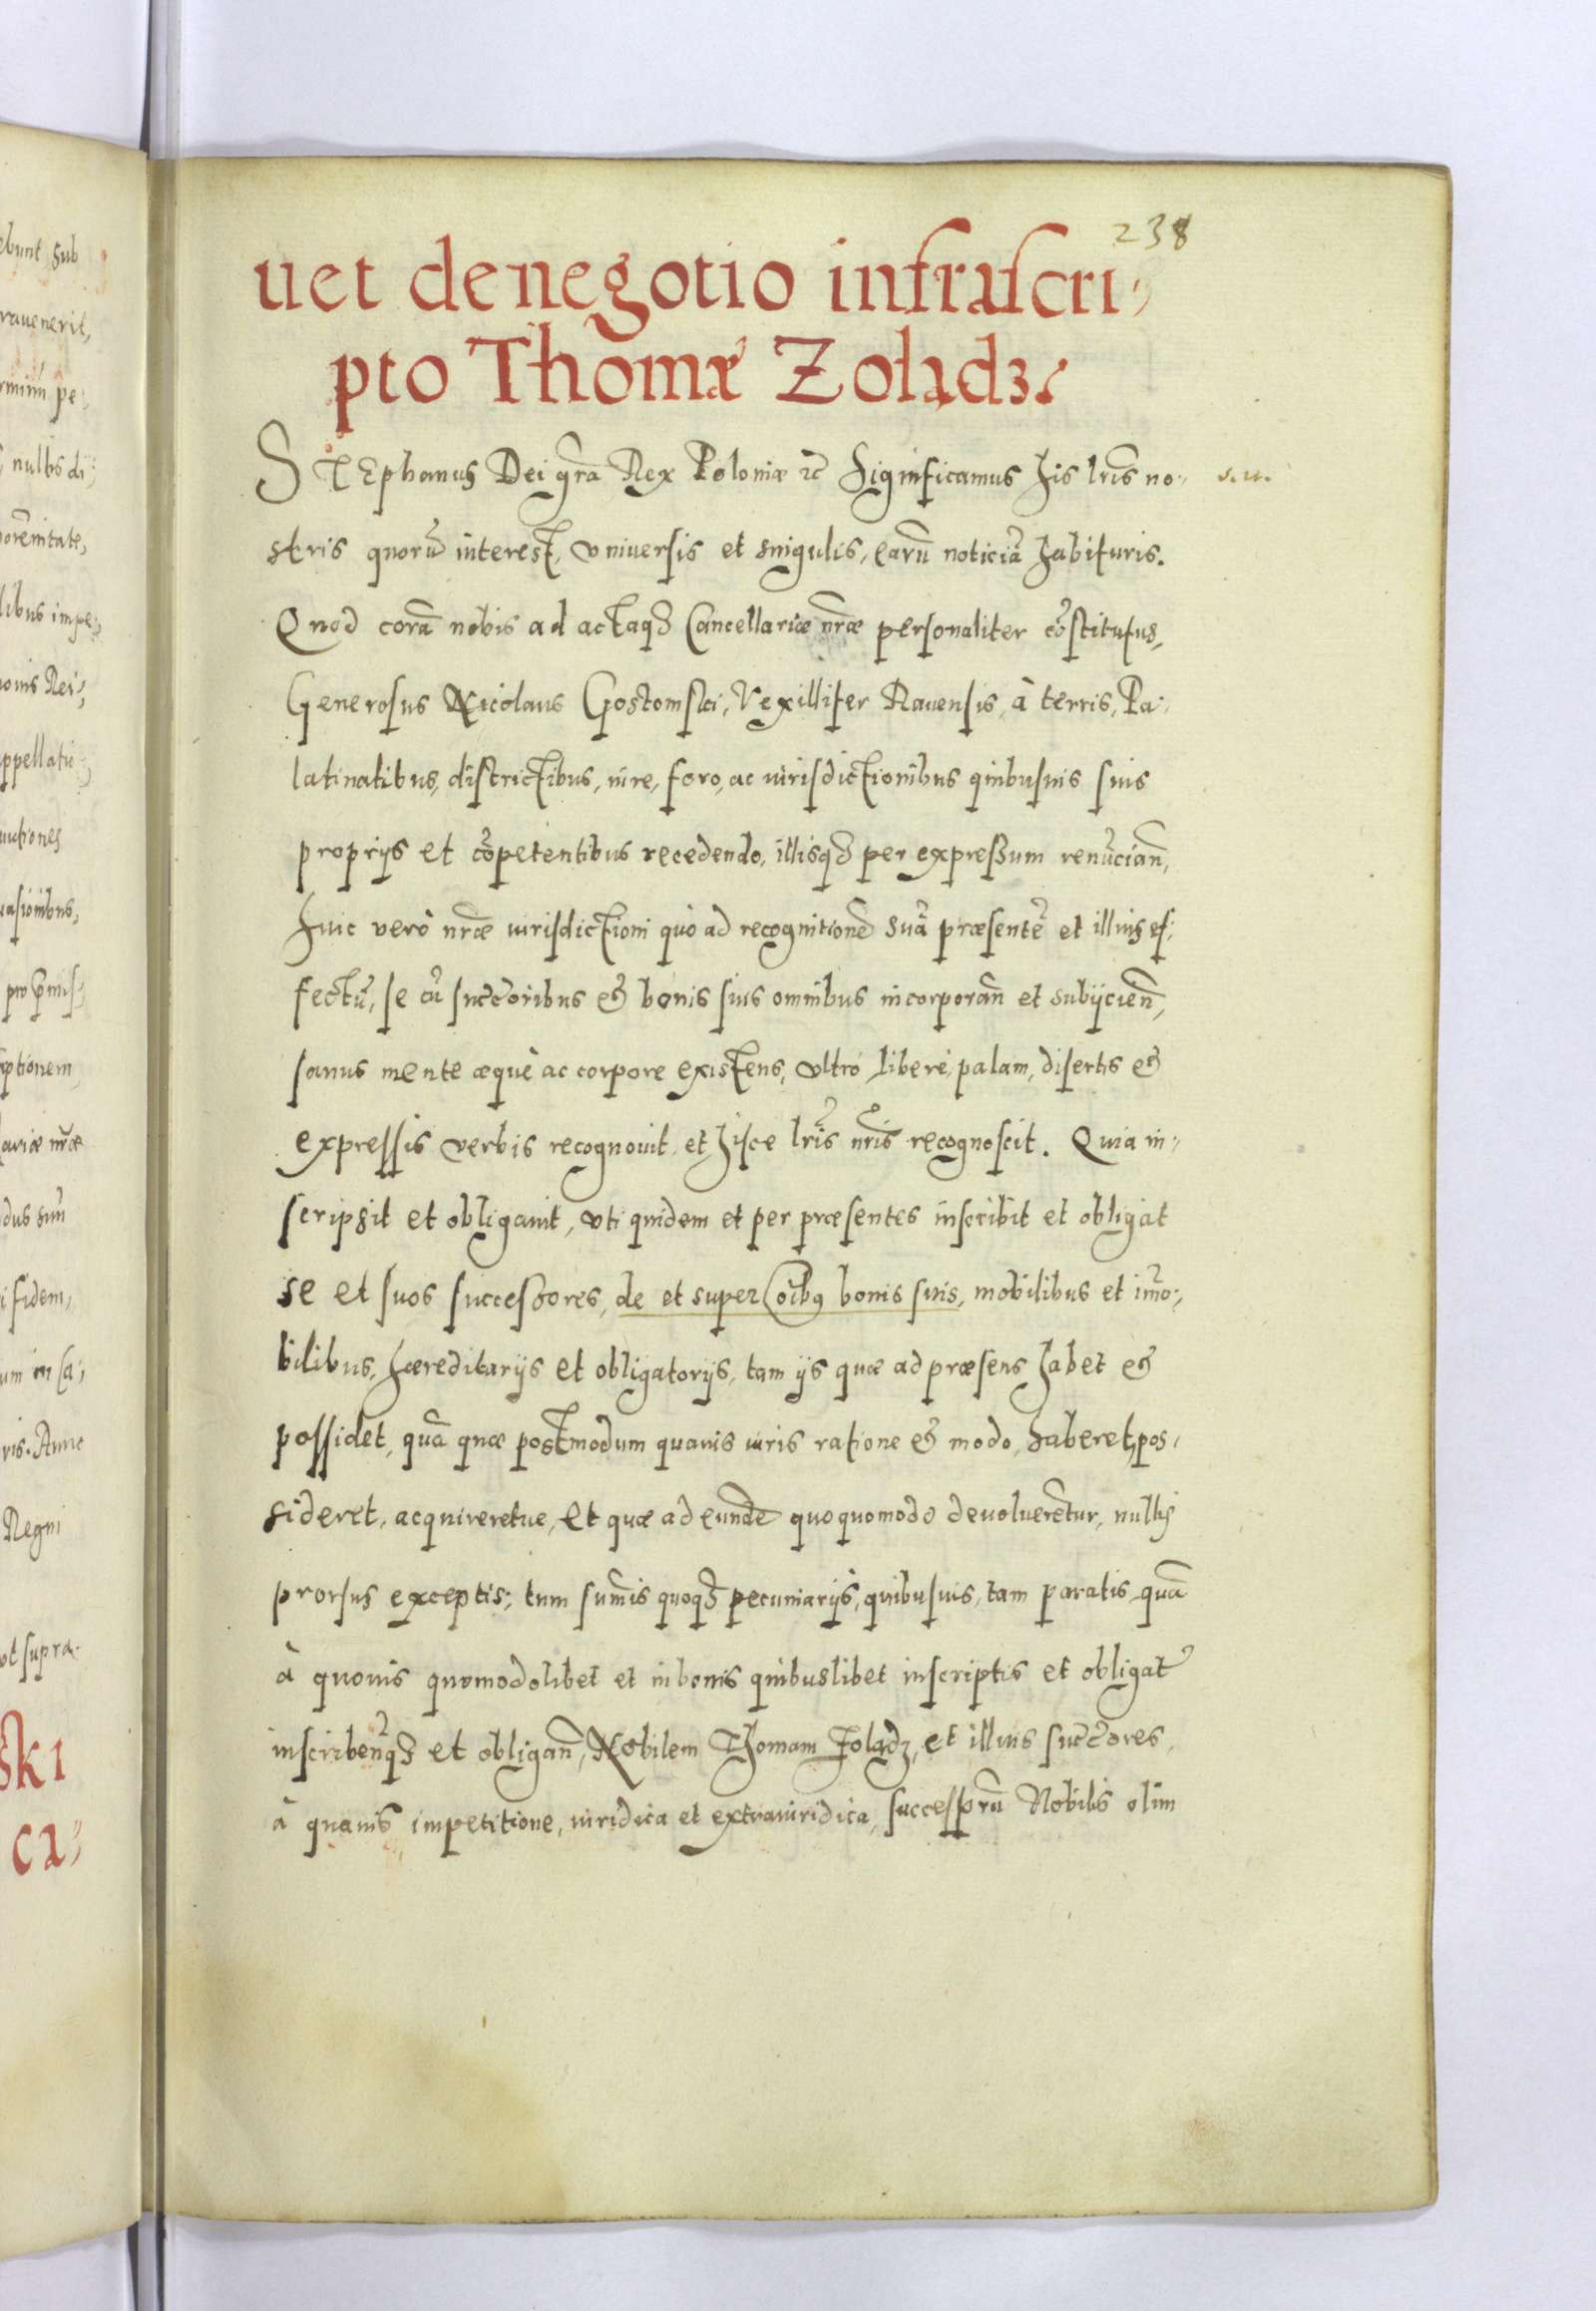 238
uet de negotio infrascri-
pto Thomæ Zolądz.
STEphanus Dei gr̃a Rex Poloniæ ꝛc̃ Significamus his lr̃is no-
s. u.
stris quorũ interest, vniuersis et singulis, earũ noticiã habituris.
Quod corã nobis ad actaqꝫ Cancellariæ nr̃æ personaliter cõstitutus,
Generosus Nicolaus Gostomski, Vexillifer Rauensis, à terris, Pa-
latinatibus, districtibus, iure, foro, ac iurisdictionibus quibusuis suis
proprijs et cõpetentibus recedendo, illisqꝫ per expressum renũcian̄,
huic verò nr̃æ iurisdictioni quò ad recognitionẽ suã præsentẽ et illius ef-
fectũ, se cũ succ̃oribus et bonis suis omnibus incorporan̄ et subijcien̄,
sanus mente æquè ac corpore existens, vltro, liberè, palam, disertis et
expressis verbis recognouit, et hisce lr̃is nr̃is recognoscit. Quia in-
scripsit et obligauit, vti quidem et per præsentes inscribit et obligat
se et suos successores, de et super oĩbꝰ bonis suis, mobilibus et im̃o-
bilibus, hæreditarijs et obligatorijs, tam ijs quæ ad præsens habet et
possidet, quã quæ postmodum quauis iuris ratione et modo, haberet, pos-
sideret, acquireretue, et quæ ad eundẽ quoquomodo deuoluerẽtur, nullis
prorsus exceptis; tum sum̃is quoqꝫ pecuniarijs, quibusuis, tam paratis quã
à quouis quomodolibet et in bonis quibuslibet inscriptis et obligat̃
inscriben̄qꝫ et obligan̄, Nobilem Thomam Zolądz, et illius succ̃ores,
à quauis impetitione, iuridica et extraiuridica, successorũ Nobilis olim